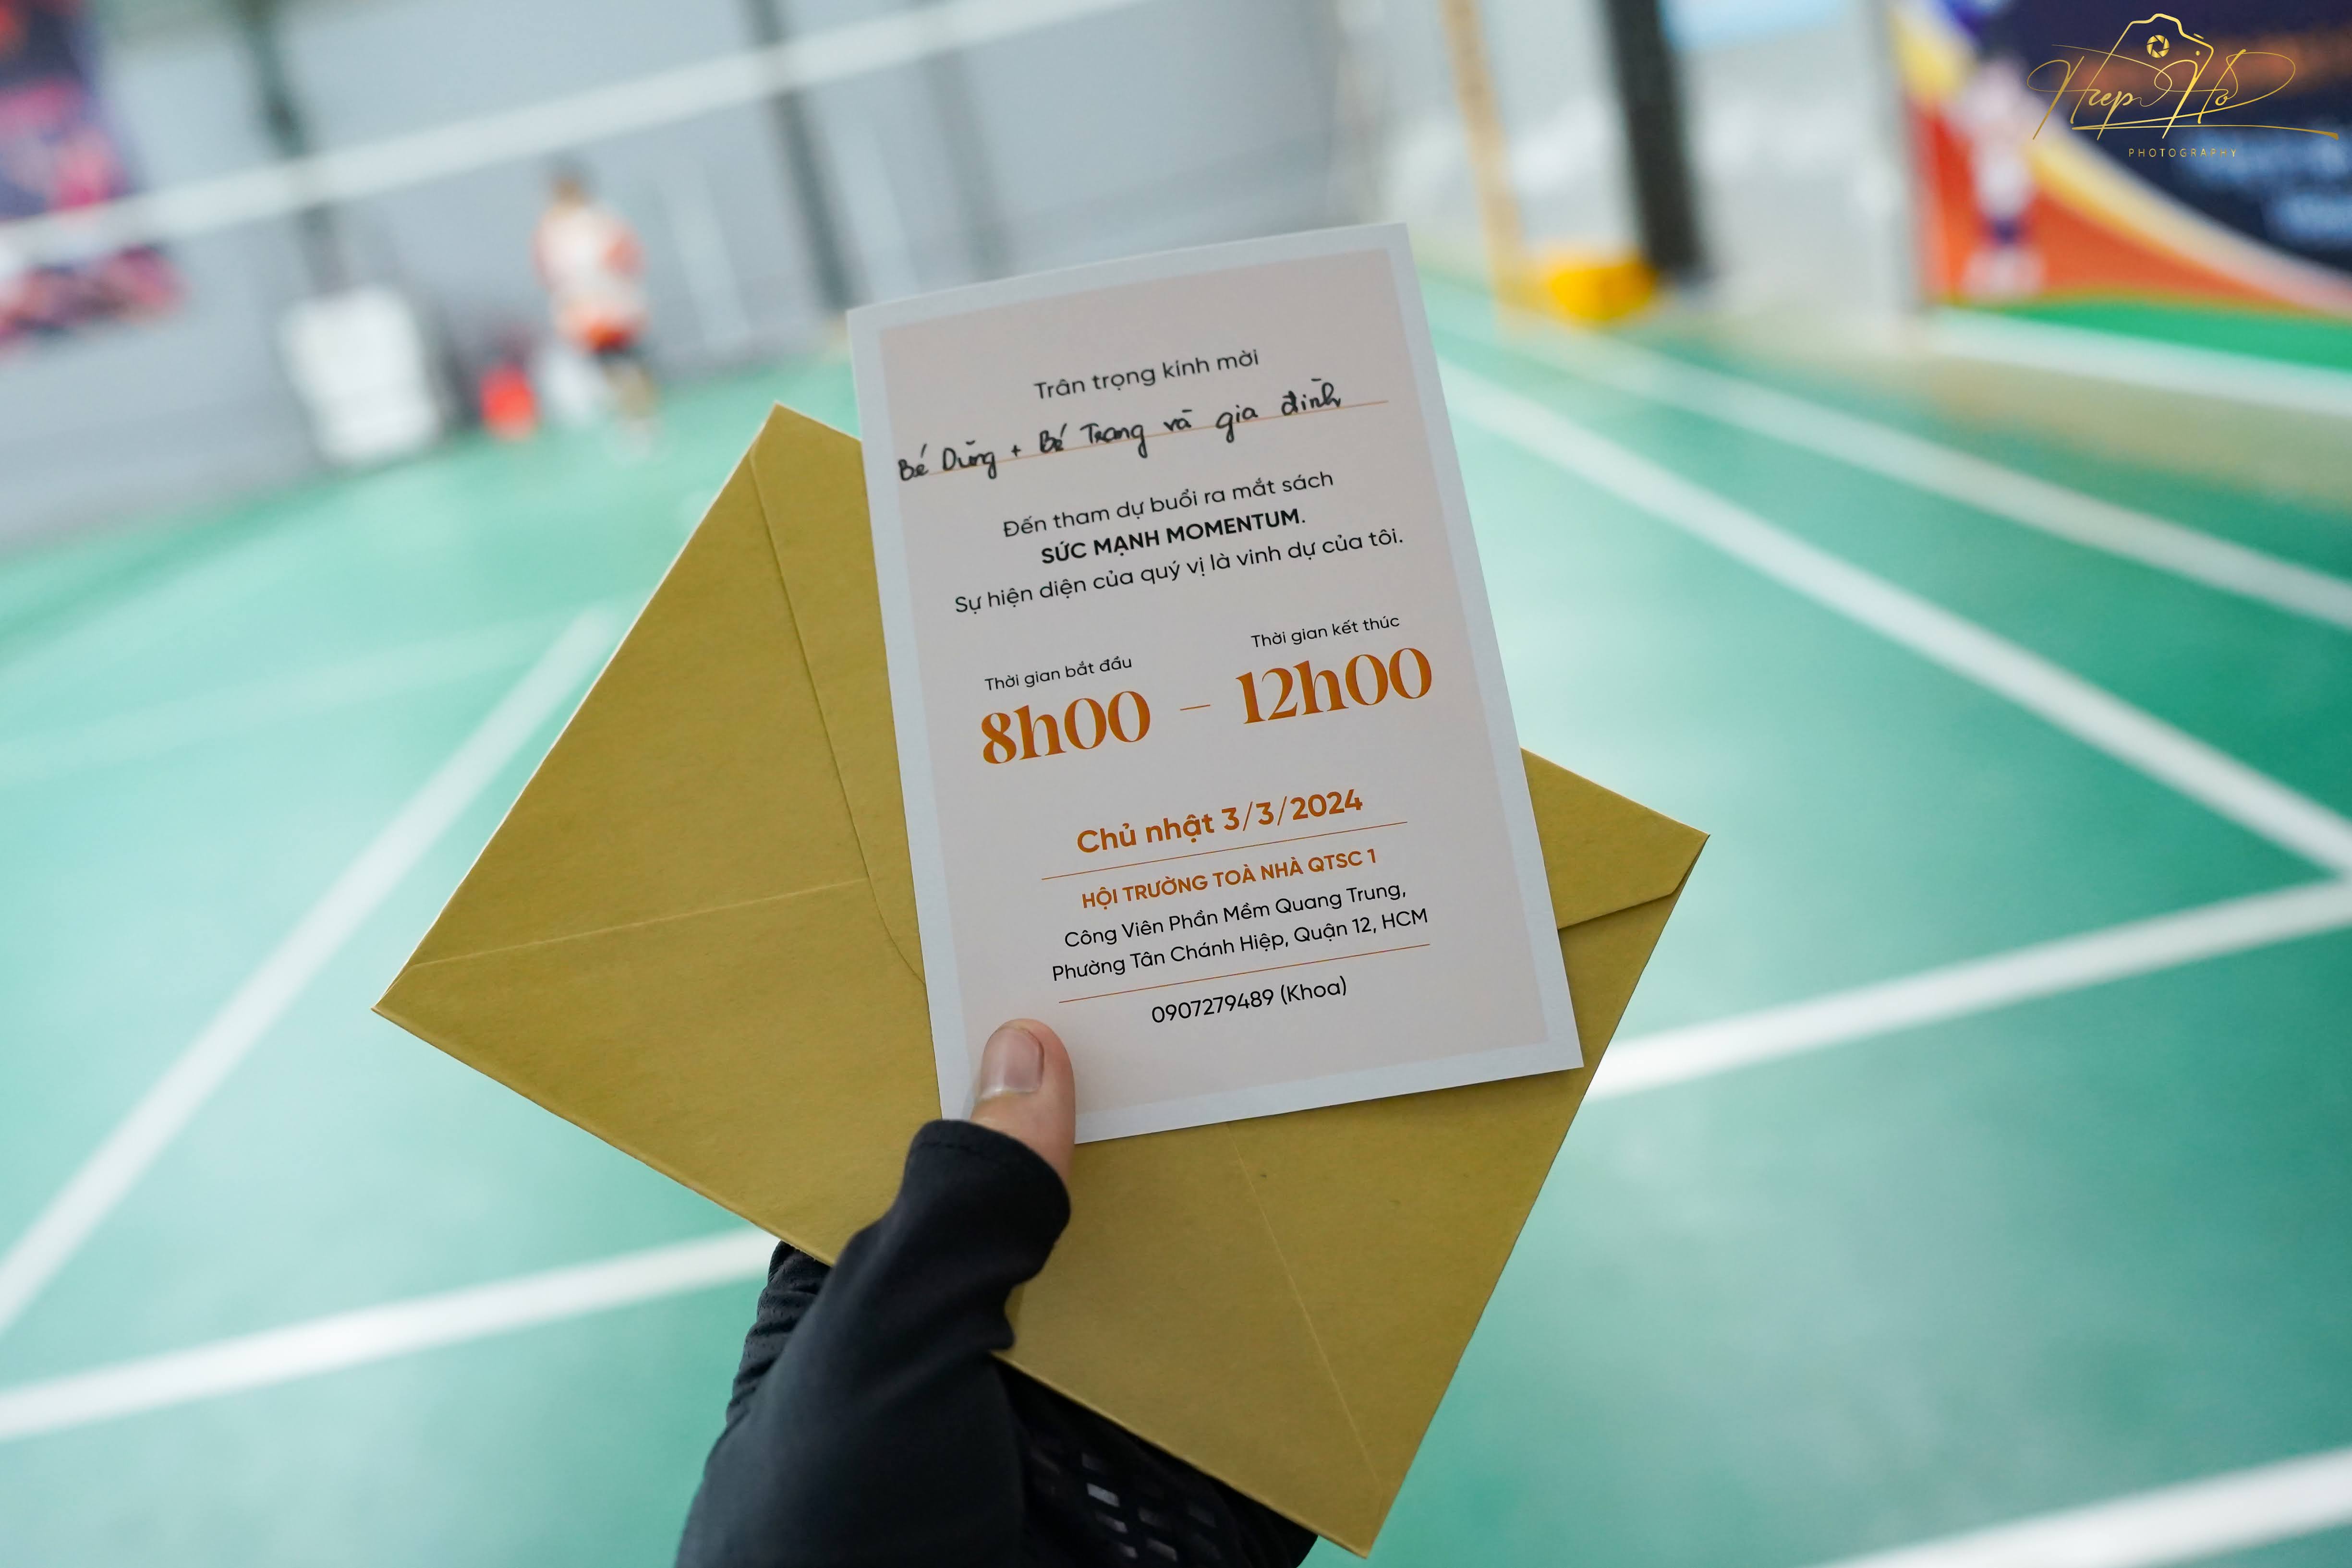 Hiep Ho
PHOTOGRAPHY
Trân trọng kính mời
Bé Dũng + Bé Trang và gia đình
Đến tham dự buổi ra mắt sách
SỨC MẠNH MOMENTUM.
Sự hiện diện của quý vị là vinh dự của tôi.
Thời gian bắt đầu
Thời gian kết thúc
8h00 – 12h00
Chủ nhật 3/3/2024
HỘI TRƯỜNG TOÀ NHÀ QTSC 1
Công Viên Phần Mềm Quang Trung,
Phường Tân Chánh Hiệp, Quận 12, HCM
0907279489 (Khoa)